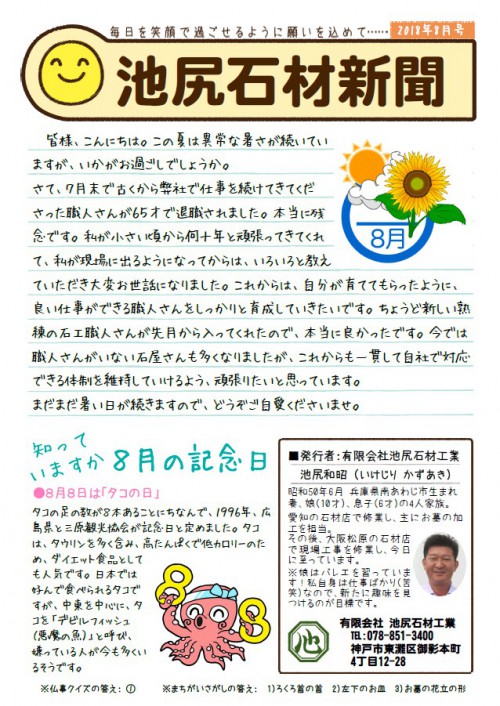 毎日を笑顔で過ごせるように願いを込めて……
2018年8月号
池尻石材新聞
皆様、こんにちは。この夏は異常な暑さが続いてい
ますが、いかがお過ごしでしょうか。
さて、7月末で古くから弊社で仕事を続けてきてくだ
さった職人さんが65才で退職されました。本当に残
念です。私が小さい頃から何十年と頑張ってきてくれ
て、私が現場に出るようになってからは、いろいろと教え
ていただき大変お世話になりました。これからは、自分が育ててもらったように、
良い仕事ができる職人さんをしっかりと育成していきたいです。ちょうど新しい熟
練の石工職人さんが先月から入ってくれたので、本当に良かったです。今では
職人さんがいない石屋さんも多くなりましたが、これからも一貫して自社で対応
できる体制を維持していけるよう、頑張りたいと思っています。
まだまだ暑い日が続きますので、どうぞご自愛くださいませ。
8月
知って
いますか 8月の記念日
●8月8日は「タコの日」
タコの足の数が8本あることにちなんで、1996年、広
島県と三原観光協会が記念日と定めました。タコ
は、タウリンを多く含み、高たんぱくで低カロリーのた
め、ダイエット食品として
も人気です。日本では
好んで食べられるタコで
すが、中東を中心に、タ
コを「デビルフィッシュ
(悪魔の魚)」と呼び、
嫌っている人が今も多くい
るそうです。
■発行者:有限会社池尻石材工業
池尻和昭 (いけじり かずあき)
昭和50年6月 兵庫県南あわじ市生まれ
妻、娘(10才)、息子(6才)の4人家族。
愛知の石材店で修業し、主にお墓の加
工を担当。
その後、大阪松原の石材店
で現場工事を修業し、今日
に至っています。
※娘はバレエを習っていま
す!私自身は仕事ばかり(苦
笑)なので、新たに趣味を見
つけるのが目標です。
池
有限会社 池尻石材工業
TEL:078-851-3400
神戸市東灘区御影本町
4丁目12-28
※仏事クイズの答え:①
※まちがいさがしの答え: 1)ろくろ首の首 2)左下のお皿 3)お墓の花立の形